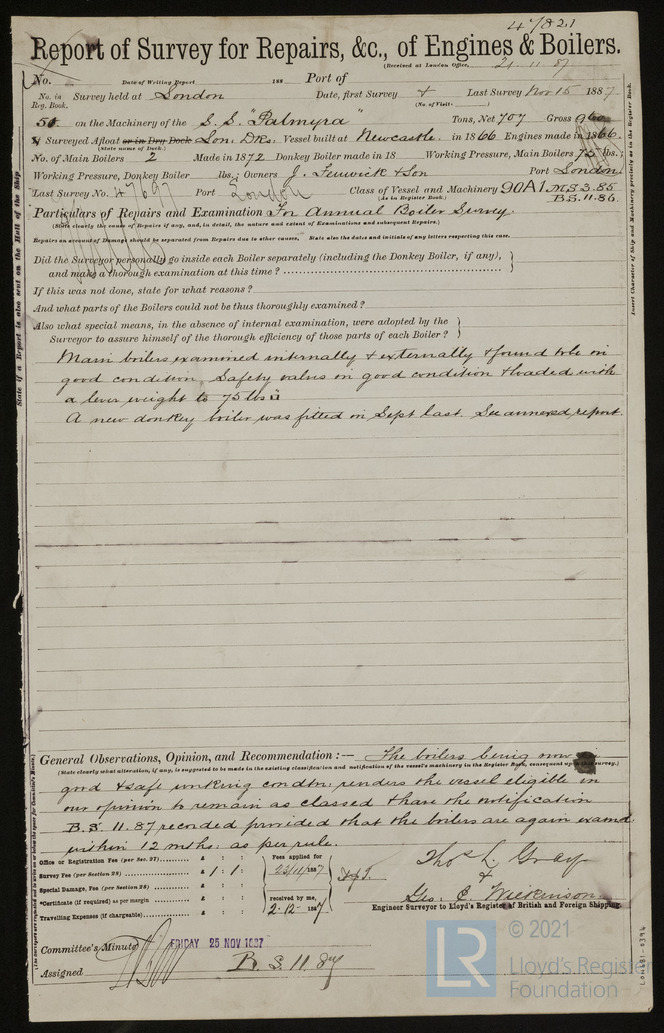 47821
Report of Survey for Repairs, &c., of Engines & Boilers.
(Received at London Office, 21.11.87
No. Date of Writing Report 188 Port of
No. in Reg. Book. Survey held at London Date, first Survey + Last Survey Nov 15 1887
(No. of Visits)
on the Machinery of the S.S. "Palmyra" Tons, Net 707 Gross
Surveyed Afloat or in Dry Dock Lon: Dks. Vessel built at Newcastle in 1866 Engines made in 1866
(State name of Dock.)
No. of Main Boilers 2 Made in 1872 Donkey Boiler made in 18 Working Pressure, Main Boilers 75 lbs.;
Working Pressure, Donkey Boiler lbs.; Owners J. Fenwick & Son Port London
Last Survey No. 47697 Port London Class of Vessel and Machinery 90A1 M.S. 3.85
(As in Register Book.) B.S. 11.86.
Particulars of Repairs and Examination For Annual Boiler Survey
(State clearly the cause of Repairs if any, and, in detail, the nature and extent of Examinations and subsequent Repairs.)
Repairs on account of Damage should be separated from Repairs due to other causes. State also the dates and initials of any letters respecting this case.
Did the Surveyor personally go inside each Boiler separately (including the Donkey Boiler, if any),
and make a thorough examination at this time?
If this was not done, state for what reasons?
And what parts of the Boilers could not be thus thoroughly examined?
Also what special means, in the absence of internal examination, were adopted by the
Surveyor to assure himself of the thorough efficiency of those parts of each Boiler?
Main boilers examined internally & externally & found to be in
good condition. Safety valves in good condition & loaded with
a lever weight to 75 lbs □"
A new donkey boiler was fitted in Sept last. See annexed report.
General Observations, Opinion, and Recommendation:— The boilers being now in
(State clearly what alteration, if any, is suggested to be made in the existing classification and notification of the vessel's machinery in the Register Book, consequent upon this survey.)
good & safe working condtn: renders the vessel eligible in
our opinion to remain as classed & have the notification
B.S. 11.87 recorded provided that the boilers are again examd
within 12 mths: as per rule.
Office or Registration Fee (per Sec. 27) £ : :
Survey Fee (per Section 28) £ 1 : 1 :
Special Damage, Fee (per Section 28) £ : :
*Certificate (if required) as per margin £ : :
Travelling Expenses (if chargeable) £ : :
Fees applied for
23/11/1887
received by me,
2-12-1887
Thos L. Gray
+
Geo: E. Wilkinson
Engineer Surveyor to Lloyd's Register of British and Foreign Shipping.
Committee's Minute FRIDAY 25 NOV 1887
Assigned B.S. 11.87
State if a Report is also sent on the Hull of the Ship
Insert Character of Ship and Machinery precisely as in the Register Book.
LON681-0396
© 2021
LR
Lloyd's Register
Foundation